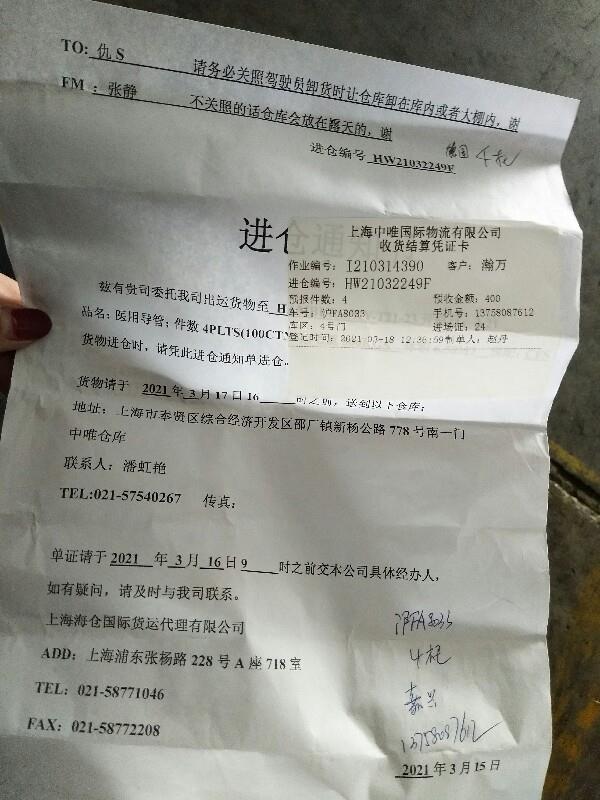 TO: 仇 S 请务必关照驾驶员卸货时让仓库卸在库内或者大棚内，谢
FM ：张静 不关照的话仓库会放在露天的，谢
德国 4托
进仓编号 HW21032249F
进仓通知
上海中唯国际物流有限公司
收货结算凭证卡
作业编号： I210314390 客户： 瀚万
进仓编号： HW21032249F
预报件数： 4 预收金额： 400
车号： 沪FA8033 手机号： 13758087612
库区： 4号门 进场证： 24
登记时间： 2021-03-18 12:36:59 制单人： 赵丹
兹有贵司委托我司出运货物至 H
品名：医用导管；件数 4PLTS(100CTN
货物进仓时，请凭此进仓通知单进仓
货物请于 2021 年 3 月 17 日 16 时之前，送到以下仓库：
地址：上海市奉贤区综合经济开发区邵厂镇新杨公路 778 号南一门
中唯仓库
联系人：潘虹艳
TEL:021-57540267 传真：
单证请于 2021 年 3 月 16 日 9 时之前交本公司具体经办人，
如有疑问，请及时与我司联系。
上海海仓国际货运代理有限公司
ADD：上海浦东张杨路 228 号 A 座 718 室
TEL：021-58771046
FAX：021-58772208
沪FA8033
4托
嘉兴
13758087612
2021 年 3 月 15 日